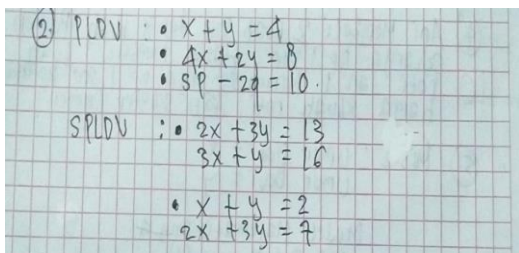 2. PLDV : • x + y = 4
• 4x + 2y = 8
• 5p - 2q = 10.
SPLDV : • 2x + 3y = 13
3x + y = 16
• x + y = 2
2x + 3y = 7